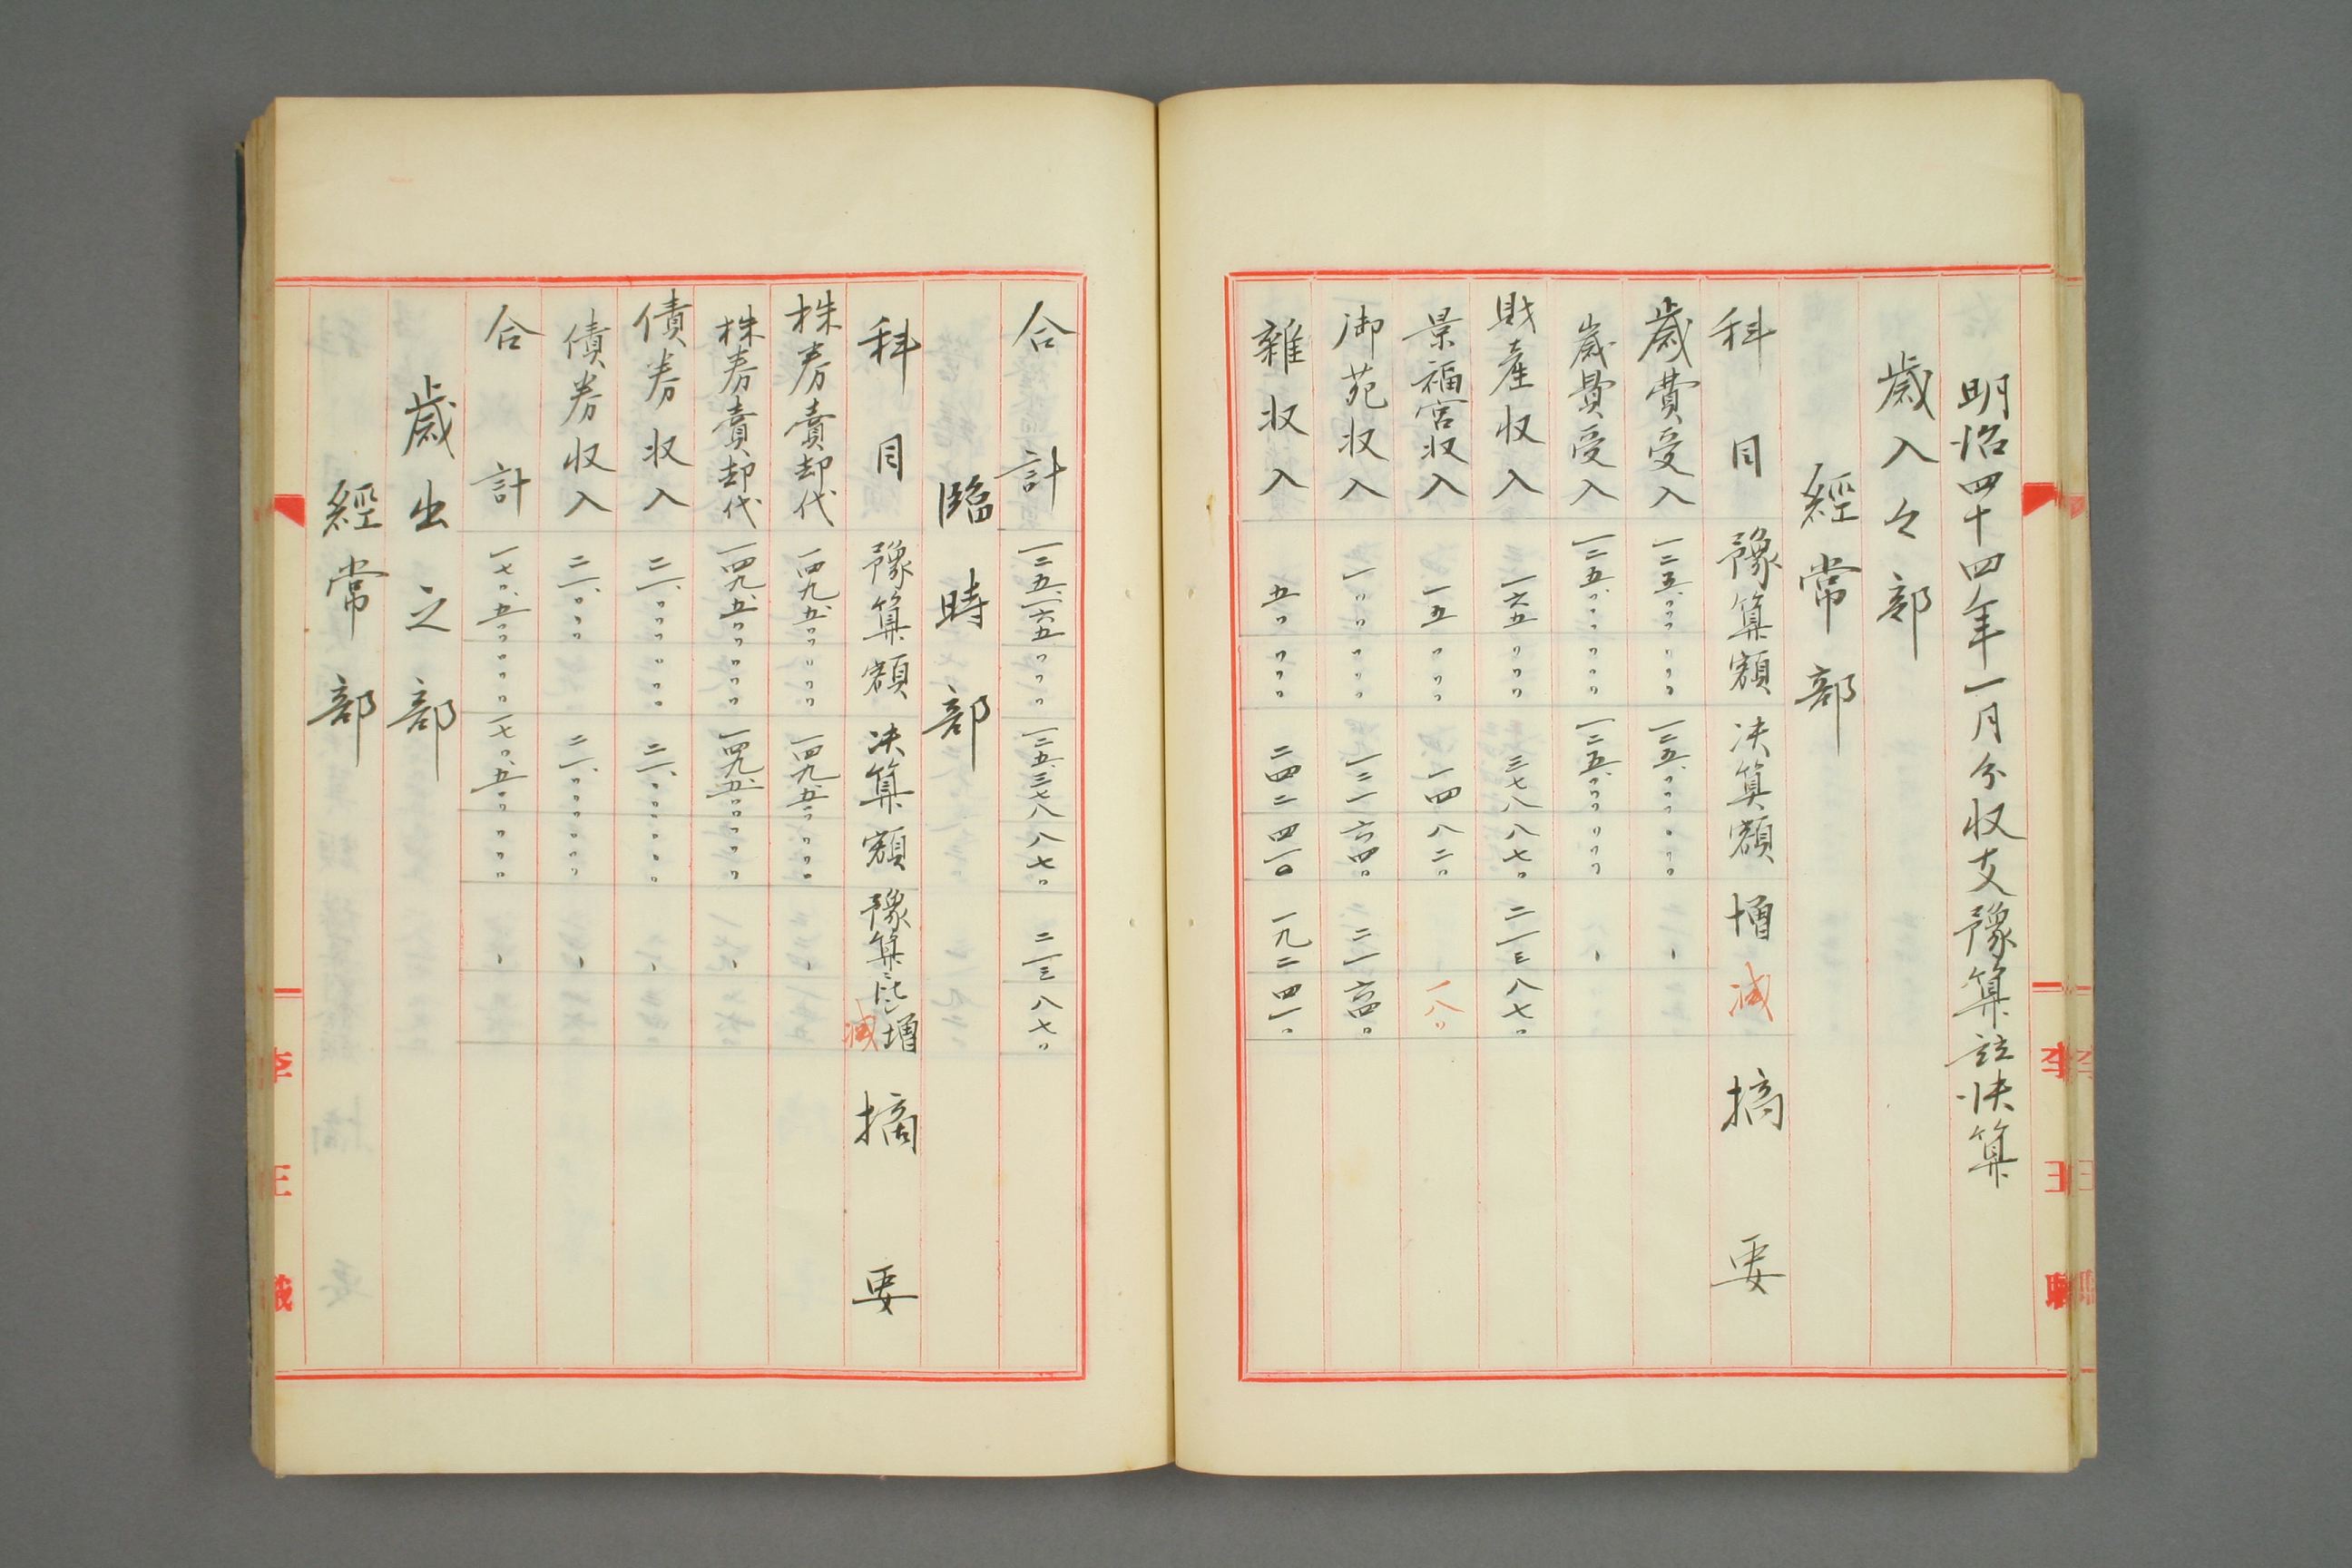 明治四十四年一月分収支豫算並決算
歳入之部
經常部
科目 豫算額 决算額 増減 摘要
歳費受入 一二五、〇〇〇 〇〇〇 一二五、〇〇〇 〇〇〇 、
歳費受入 一二五、〇〇〇 〇〇〇 一二五、〇〇〇 〇〇〇 、
財産収入 一六五 〇〇〇 三七八 八七〇 二一三 八七〇
景福宮収入 一五 〇〇〇 一四 八二〇 一八〇
御苑収入 一〇〇 〇〇〇 一二一 六四〇 二一 六四〇
雜収入 五〇 〇〇〇 二四二 四一〇 一九二 四一〇
李王職
合計 一二五、一六五 〇〇〇 一二五、三七八 八七〇 二一三 八七〇
臨時部
科目 豫算額 决算額 豫算ニ比シ増減 摘要
株券賣却代 一四九、五〇〇 〇〇〇 一四九、五〇〇 〇〇〇 、
株券賣却代 一四九、五〇〇 〇〇〇 一四九、五〇〇 〇〇〇 、
債券収入 二一、〇〇〇 〇〇〇 二一、〇〇〇 〇〇〇 、
債券収入 二一、〇〇〇 〇〇〇 二一、〇〇〇 〇〇〇 、
合計 一七〇、五〇〇 〇〇〇 一七〇、五〇〇 〇〇〇 、
歳出之部
經常部
李王職